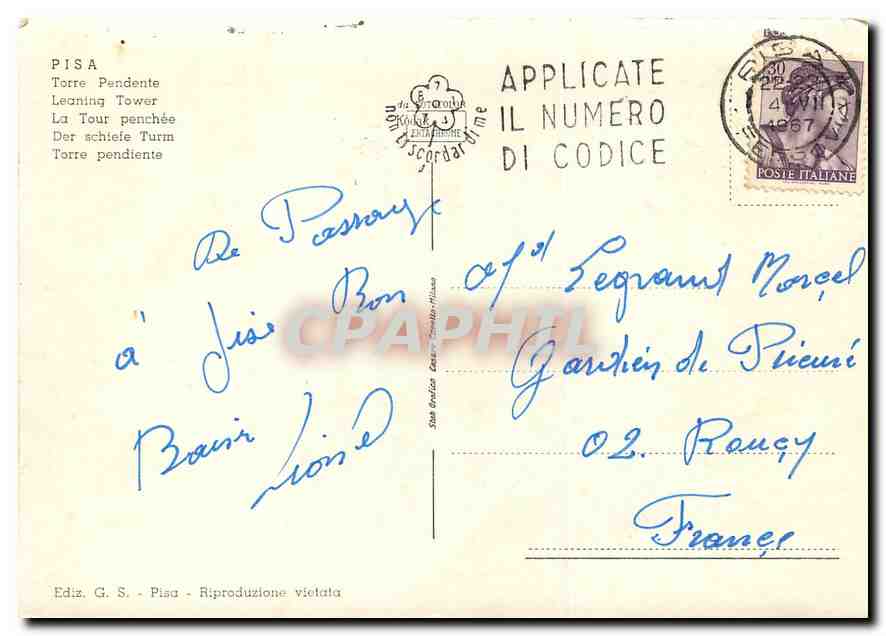 PISA
Torre Pendente
Leaning Tower
La Tour penchée
Der schiefe Turm
Torre pendiente
da FOTOCOLOR
Kodak
EKTACHROME
non ti scordar di me
APPLICATE
IL NUMERO
DI CODICE
PISA
22-23
4 VII
1967
30
POSTE ITALIANE
De Passage
à Pise Bon
Baiser
Lionel
Legrand Marcel
Gardien de Prieuré
02. Roucy
France
Stab Grafico Cesare Capello-Milano
CPAPHIL
Ediz. G. S. - Pisa - Riproduzione vietata